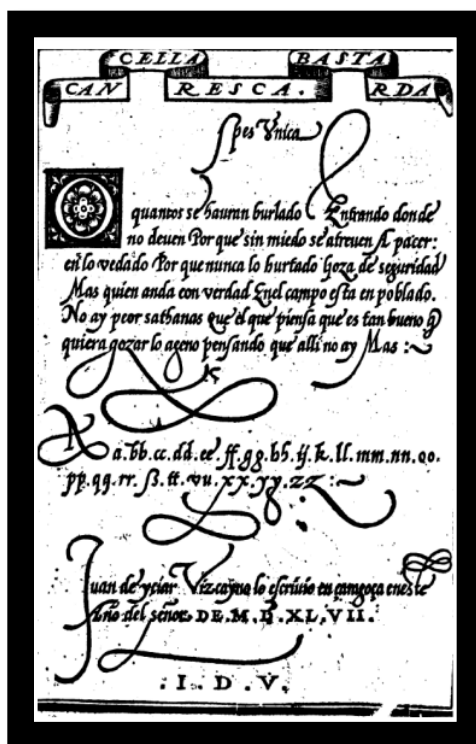 CANCELLARESCA. BASTARDA
Spes Vnica
O quantos se hauran burlado Entrando donde
no deuen Por que sin miedo se atreuen Al pacer:
en lo vedado Por que nunca lo hurtado goza de seguridad
Mas quien anda con verdad Enel campo esta en poblado.
No ay peor sathanas que el que piensa que es tan bueno q̃
quiera gozar lo ageno pensando que alli no ay Mas :~
A a.bb.cc.dd.ee.ff.gg.hh.ij.k.ll.mm.nn.oo.
pp.qq.rr.ſß.tt.vu.xx.yy.zz :~
Juan de yciar Vizcayno lo escriuio en çaragoça eneste
Año del señor. DE.M.D.XL.VII.
.I.D.V.